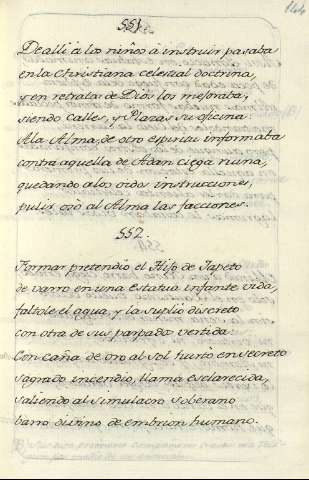 551.
De alli à los niños à instruir pasaba
en la Christiana celestial doctrina,
y en retrato de Dios los mejoraba,
siendo Calles, y Plazas su oficina:
A la Alma, de otro espiritu informaba
contra aquella de Adàn ciega ruina,
quedando à los oidos instrucciones,
pulir oyó al Alma las facciones.
552.
Formar pretendio el Hijo de Japeto
de varro en una estatua infante vida,
faltole el agua, y la suplió discreto
con otra de sus parpados vertida:
Con caña de oro al Sol hurtó en secreto
sagrado incendio, llama esclarecida,
saliendo al simulacro soberano
barro divino de embrion humano.